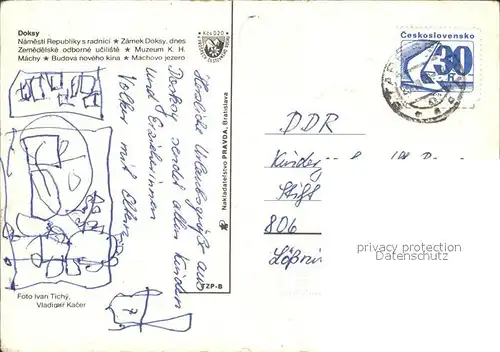 Doksy
Náměstí Republiky s radnicí ★ Zámek Doksy, dnes
Zemědělské odborné učiliště ★ Muzeum K. H.
Máchy ★ Budova nového kina ★ Máchovo jezero
Kčs 0,20
Československo
30
h
Herzliche Urlaubsgrüße aus
Doksy sendet allen Kindern
und Erzieherinnen
Volker mit Eltern
Nakladatelství PRAVDA, Bratislava
TZP-B
DDR
Kinder
Stift
806
privacy protection
Datenschutz
Foto Ivan Tichý,
Vladimír Kačer